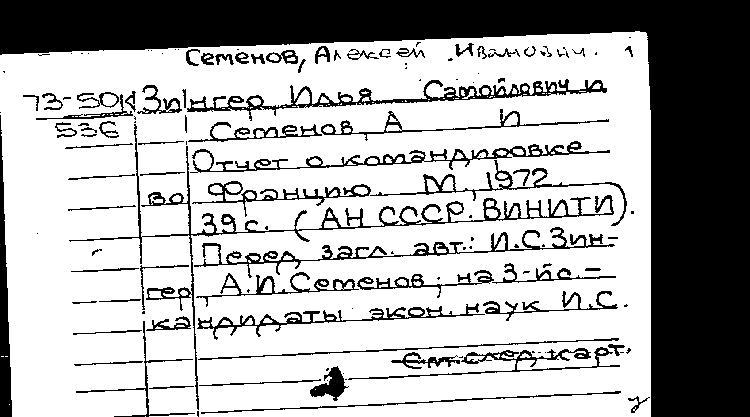 Семенов, Алексей Иванович. 1
73-50К Зингер, Илья Самойлович и
536 Семенов, А И
Отчет о командировке
во Францию. М., 1972.
39 с. (АН СССР. ВИНИТИ).
Перед загл. авт.: И.С. Зин-
гер, А.И. Семенов; на 3-й с. -
кандидаты экон. наук И.С.
См. след. карт.